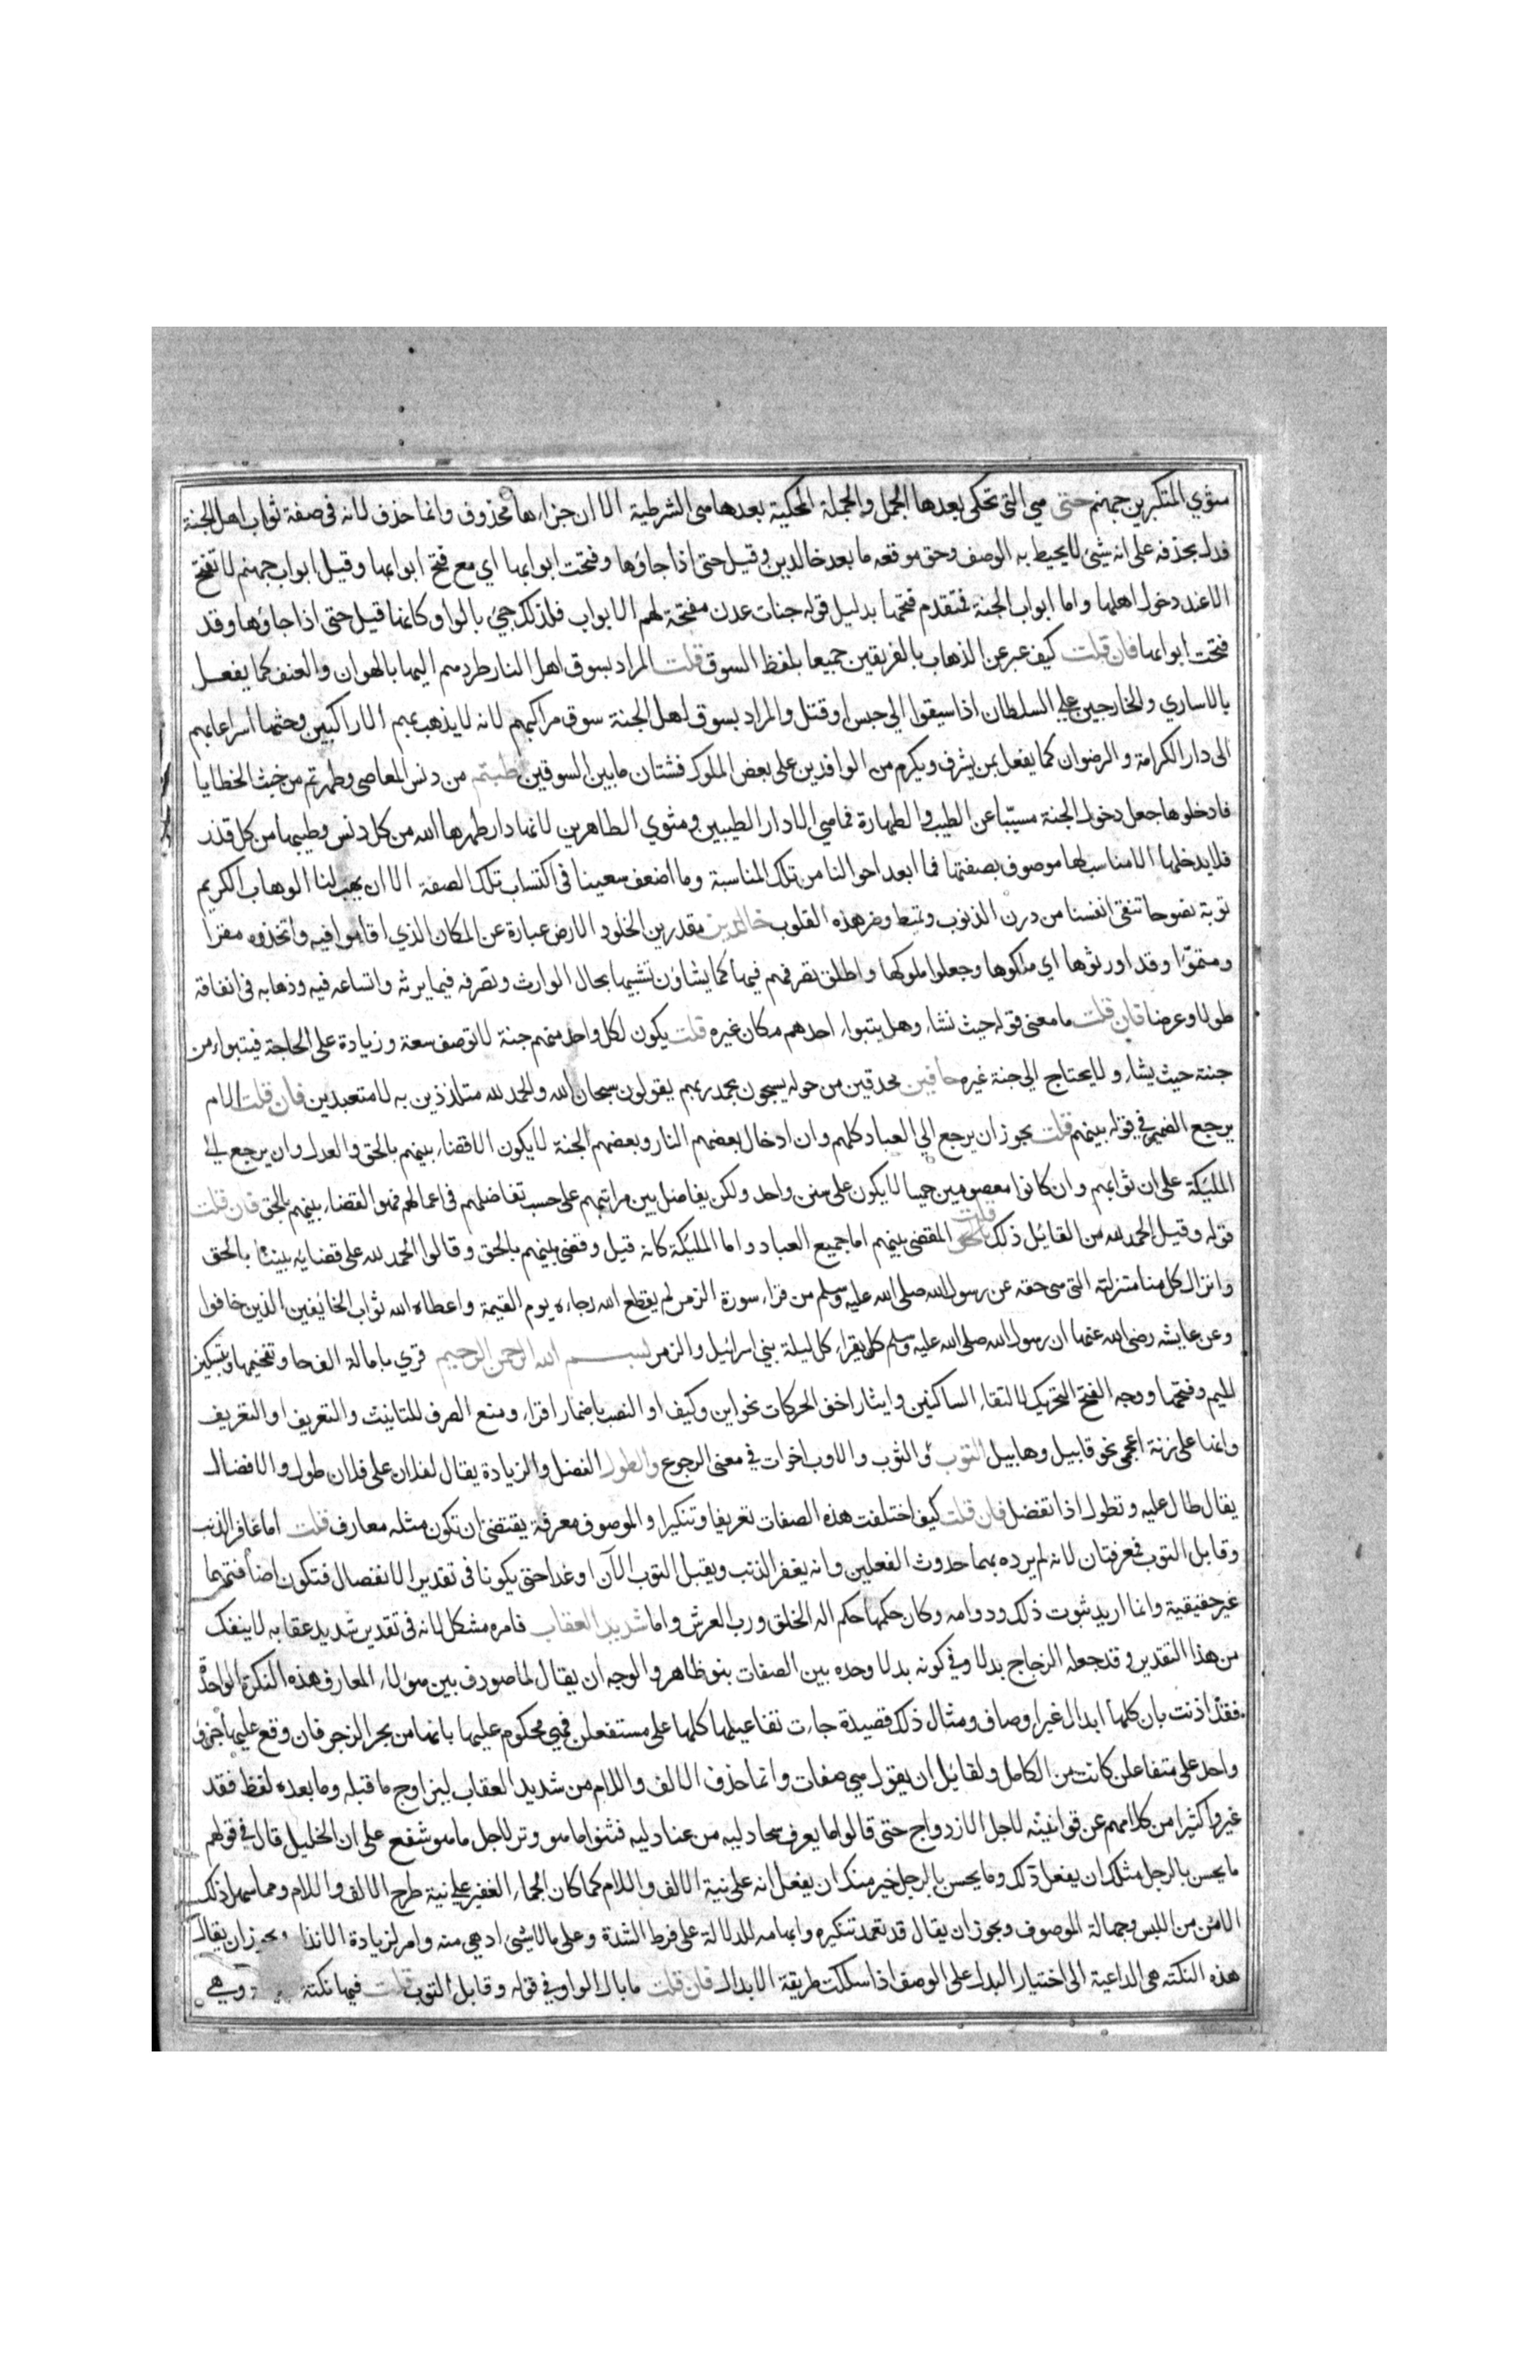 مثوي المتكبرين جهنم حتى هي التي تحكى بعدها الجمل والجملة المحكية بعدها هى الشرطية الا ان جزاءها محذوف وانما حذف لانه فى صفة ثواب اهل الجنة
فدل بحذفه على انه شئ لا يحيط به الوصف وحق موقعه ما بعد خالدين وقيل حتى اذا جاؤها وفتحت ابوابها اي مع فتح ابوابها وقيل ابواب جهنم لا تفتح
الا عند دخول اهلها واما ابواب الجنة فتقدم فتحها بدليل قوله جنات عدن مفتحة لهم الابواب فلذلك جئ بالواو كانها قيل حتى اذا جاؤها وقد
فتحت ابوابها فان قلت كيف عبر عن الذهاب بالفريقين جميعا بلفظ السوق قلت المراد بسوق اهل النار طردهم اليها بالهوان والعنف كما يفعل
بالاساري والخارجين علي السلطان اذا سيقوا الي حبس او قتل والمراد بسوق اهل الجنة سوق مراكبهم لانه لا يذهب بهم الا راكبين وحثها اسراعا بهم
الى دار الكرامة والرضوان كما يفعل بمن يشرف ويكرم من الوافدين على بعض الملوك فشتان ما بين السوقين طبتم من دنس المعاصى وطهرتم من خبث الخطايا
فادخلوها جعل دخول الجنة مسببا عن الطيب والطهارة فما هي الا دار الطيبين ومثوي الطاهرين لانها دار طهرها الله من كل دنس وطيبها من كل قذر
فلا يدخلها الا مناسب لها موصوف بصفتها فما ابعد احوالنا من تلك المناسبة وما اضعف سعينا فى اكتساب تلك الصفة الا ان يهب لنا الوهاب الكريم
توبة نصوحا تنقى انفسنا من درن الذنوب وتميط وضر هذه القلوب خالدين مقدرين الخلود الارض عبارة عن المكان الذي اقاموا فيه واتخذوه مقرا
ومتبوّا وقد اورثوها اي ملكوها وجعلوا ملوكها واطلق تصرفهم فيها كما يشاؤن تشبيها بحال الوارث وتصرفه فيما يرثه واتساعه فيه وذهابه فى انفاقه
طولا وعرضا فان قلت ما معنى قوله حيث نشاء وهل يتبواء احدهم مكان غيره قلت يكون لكل واحد منهم جنة لا توصف سعة وزيادة على الحاجة فيتبواء من
جنته حيث يشاء ولا يحتاج الي جنة غيره حافين محدقين من حوله يسبحون بحمد ربهم يقولون سبحان الله والحمد لله متلذذين به لا متعبدين فان قلت الام
يرجع الضمير في قوله بينهم قلت يجوز ان يرجع الي العباد كلهم وان ادخال بعضهم النار وبعضهم الجنة لا يكون الا قضاء بينهم بالحق والعدل وان يرجع الي
المليكة على ان ثوابهم وان كانوا معصومين جميعا لا يكون على سنن واحد ولكن يفاضل بين مراتبهم على حسب تفاضلهم فى اعمالهم فهو القضاء بينهم بالحق فان قلت
قوله وقيل الحمد لله من القائل ذلك قلت المقضى بينهم اما جميع العباد واما المليكة كانه قيل وقضى بينهم بالحق وقالوا الحمد لله على قضايه بيننا بالحق
وانزال كل منا منزلته التى هى حقه عن رسول الله صلى الله عليه وسلم من قراء سورة الزمر لم يقطع الله رجاءه يوم القيمة واعطاه الله ثواب الخايفين الذين خافوا
وعن عايشه رضى الله عنها ان رسول الله صلى الله عليه وسلم كان يقراء كل ليلة بني اسرائيل والزمر بسم الله الرحمن الرحيم قري بامالة الف حا وتفخيمها وبتسكين
الميم وفتحها ووجه الفتح التحريك لالتقاء الساكنين وايثار اخف الحركات نحو اين وكيف او النصب باضمار اقراء ومنع الصرف للتانيث والتعريف او التعريف
وانها على زنة اعجمى نحو قابيل وهابيل التوب والثوب والاوب اخوات في معنى الرجوع والطول الفضل والزيادة يقال لفلان على فلان طول والافضال
يقال طال عليه وتطول اذا تفضل فان قلت كيف اختلفت هذه الصفات تعريفا وتنكيرا والموصوف معرفة يقتضى ان تكون مثله معارف قلت اما غافر الذنب
وقابل التوب فمعرفتان لانه لم يرد بهما حدوث الفعلين وانه يغفر الذنب ويقبل التوب الآن او غدا حتى يكونا فى تقدير الانفصال فتكون اضافتهما
غير حقيقية وانما اريد ثبوت ذلك ودوامه وكان حكمها حكم اله الخلق ورب العرش واما شديد العقاب فامره مشكل لانه فى تقدير شديد عقابه لا ينفك
من هذا التقدير وقد جعله الزجاج بدلا وفي كونه بدلا وحده بين الصفات بنو ظاهر والوجه ان يقال لما صودف بين هؤلاء المعارف هذه النكرة الواحدة
فقد اذنت بان كلها ابدال غير اوصاف ومثال ذلك قصيدة جاءت تفاعيلها كلها على مستفعلن فهي محكوم عليها بانها من بحر الرجز فان وقع عليها جزؤ
واحد على متفاعلن كانت من الكامل ولقائل ان يقول هي صفات وانما حذف الالف واللام من شديد العقاب ليزاوج ما قبله وما بعده لفظ فقد
غيروا كثيرا من كلامهم عن قوانينه لاجل الازدواج حتى قالوا ما يعرف سحادليه من عنادليه فثنوا ما هو وتر لاجل ما هو شفع على ان الخليل قال في قولهم
ما يحسن بالرجل مثلك ان يفعل ذلك وما يحسن بالرجل خير منك ان يفعل انه على نية الالف واللام كما كان الجماء الغفير علي نية طرح الالف واللام ومما سهل ذلك
الامن من اللبس وجهالة الموصوف ويجوز ان يقال قد تعمد تنكيره وابهامه للدلالة على فرط الشدة وعلى ما لا شئ ادهي منه وامر لزيادة الانذا ويجوز ان يقال
هذه النكتة هى الداعية الى اختيار البدل على الوصف اذا سلكت طريقة الابدال فان قلت ما بال الواو في قوله وقابل التوب قلت فيها نكتة وهي